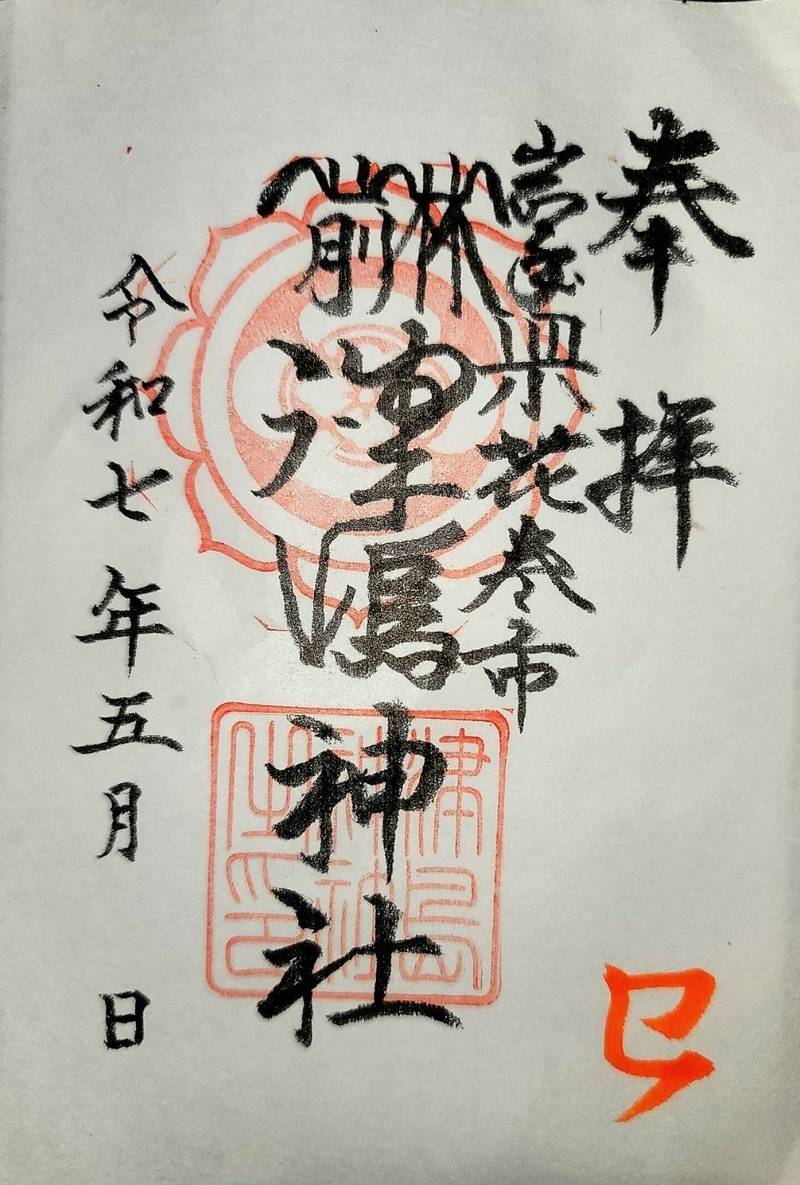 奉拝
岩手県花巻市
津嶋神社
令和七年五月 日
巳
津島神社之印